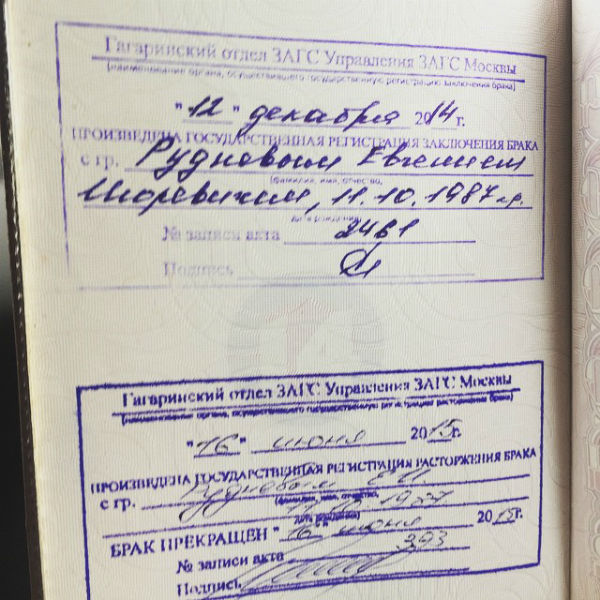 Гагаринский отдел ЗАГС Управления ЗАГС Москвы
(наименование органа, осуществившего государственную регистрацию заключения брака)
"12" декабря 2014г.
ПРОИЗВЕДЕНА ГОСУДАРСТВЕННАЯ РЕГИСТРАЦИЯ ЗАКЛЮЧЕНИЯ БРАКА
с гр. Рудневым Евгением
(фамилия, имя, отчество,
Игоревичем, 11.10.1987 г.р.
дата рождения)
№ записи акта 3461
Подпись
Гагаринский отдел ЗАГС Управления ЗАГС Москвы
(наименование органа, осуществившего государственную регистрацию расторжения брака)
"16" июня 2015г.
ПРОИЗВЕДЕНА ГОСУДАРСТВЕННАЯ РЕГИСТРАЦИЯ РАСТОРЖЕНИЯ БРАКА
с гр. Рудневым Е.И.
(фамилия, имя, отчество,
11.10.1987
дата рождения)
БРАК ПРЕКРАЩЕН "16" июня 2015г.
№ записи акта 393
Подпись